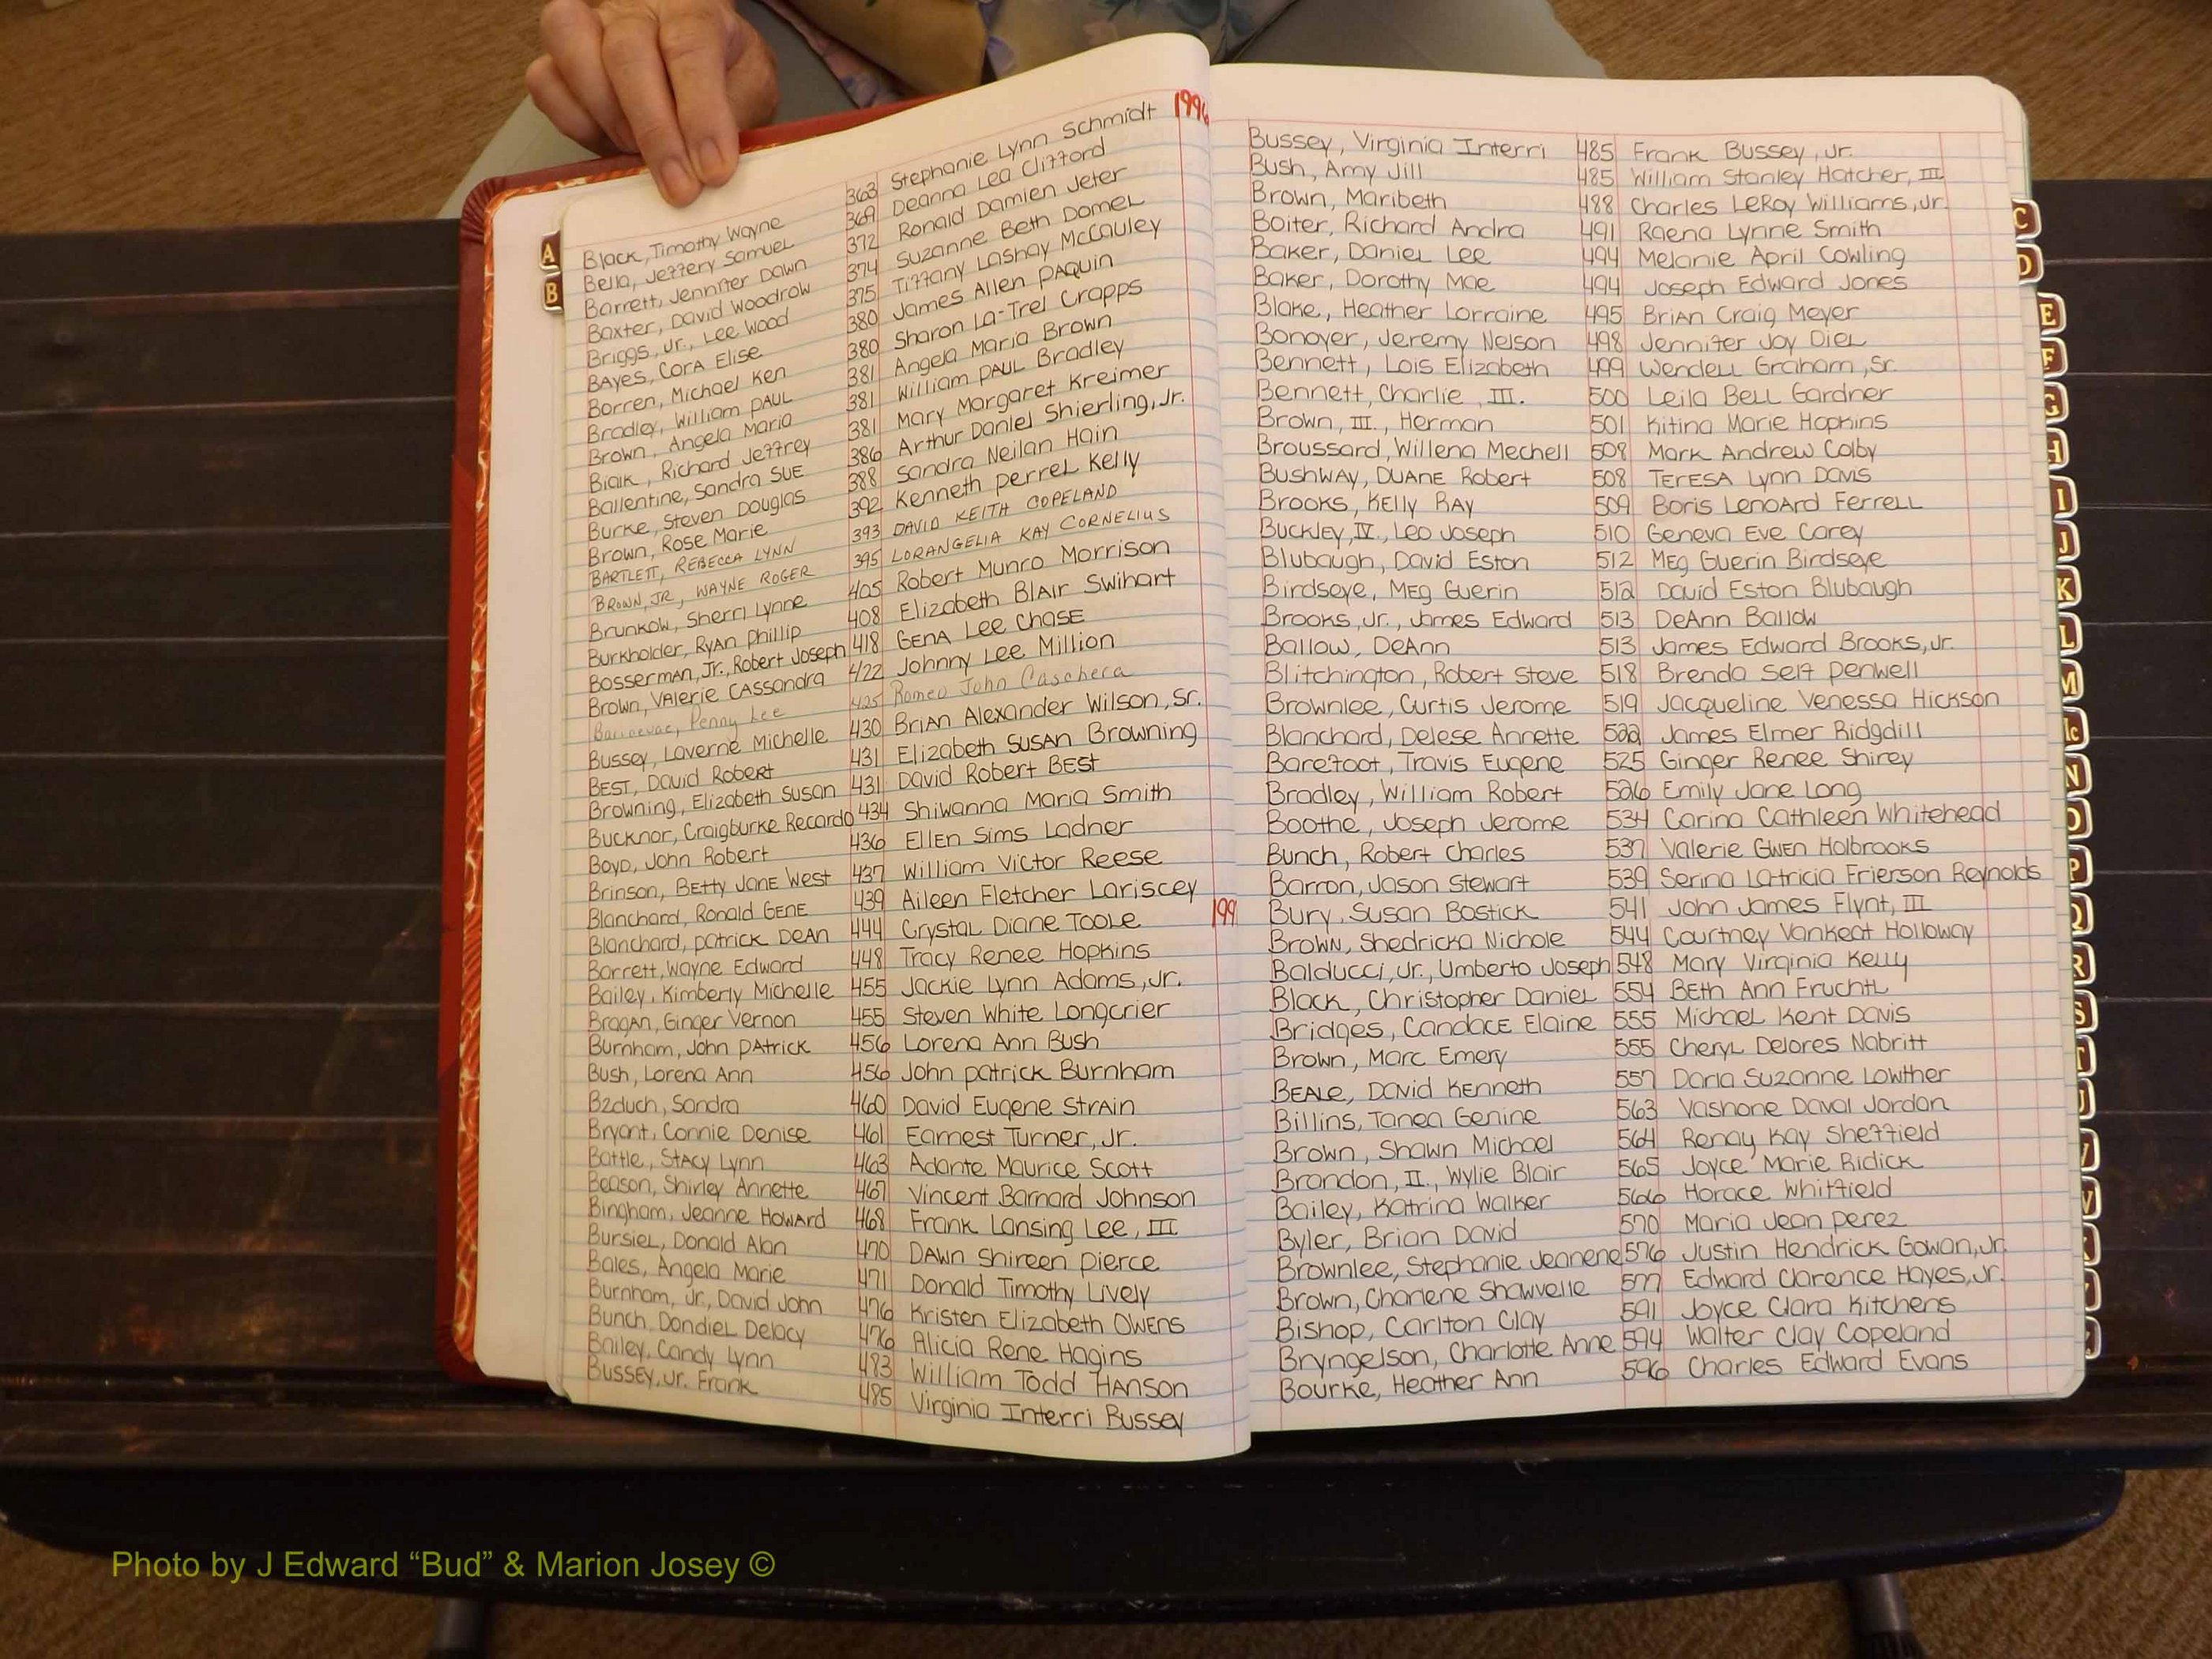 1996
Black, Timothy Wayne 363 Stephanie Lynn Schmidt
Bella, Jeffery Samuel 369 Deanna Lea Clifford
Barrett, Jennifer Dawn 372 Ronald Damien Jeter
Baxter, David Woodrow 374 Suzanne Beth Domel
Briggs, Jr., Lee Wood 375 Tiffany Lashay McCauley
Bayes, Cora Elise 380 James Allen Paquin
Borren, Michael Ken 380 Sharon La-Trel Crapps
Bradley, William Paul 381 Angela Maria Brown
Brown, Angela Maria 381 William Paul Bradley
Bialk, Richard Jeffrey 381 Mary Margaret Kreimer
Ballentine, Sandra Sue 386 Arthur Daniel Shierling, Jr.
Burke, Steven Douglas 388 Sandra Neilan Hain
Brown, Rose Marie 392 Kenneth Perrel Kelly
BARTLETT, REBECCA LYNN 393 DAVID KEITH COPELAND
BROWN, JR, WAYNE ROGER 395 LORANGELIA KAY CORNELIUS
Brunkow, Sherri Lynne 405 Robert Munro Morrison
Burkholder, Ryan Phillip 408 Elizabeth Blair Swihart
Bosserman, Jr., Robert Joseph 418 Gena Lee Chase
Brown, Valerie Cassandra 422 Johnny Lee Million
Penny Lee 425 Romeo John Caschera
Bussey, Laverne Michelle 430 Brian Alexander Wilson, Sr.
Best, David Robert 431 Elizabeth Susan Browning
Browning, Elizabeth Susan 431 David Robert Best
Bucknor, Craigburke Recardo 434 Shiwanna Maria Smith
Boyd, John Robert 436 Ellen Sims Ladner
Brinson, Betty Jane West 437 William Victor Reese
Blanchard, Ronald Gene 439 Aileen Fletcher Lariscey
Blanchard, Patrick Dean 444 Crystal Diane Toole
Barrett, Wayne Edward 448 Tracy Renee Hopkins
Bailey, Kimberly Michelle 455 Jackie Lynn Adams, Jr.
Bragan, Ginger Vernon 455 Steven White Longcrier
Burnham, John Patrick 456 Lorena Ann Bush
Bush, Lorena Ann 456 John Patrick Burnham
Bzduch, Sandra 460 David Eugene Strain
Bryant, Connie Denise 461 Earnest Turner, Jr.
Battle, Stacy Lynn 463 Adante Maurice Scott
Beason, Shirley Annette 467 Vincent Barnard Johnson
Bingham, Jeanne Howard 468 Frank Lansing Lee, III
Bursiel, Donald Alan 470 Dawn Shireen Pierce
Bales, Angela Marie 471 Donald Timothy Lively
Burnham, Jr., David John 476 Kristen Elizabeth Owens
Bunch, Dandiel Delacy 476 Alicia Rene Hagins
Bailey, Candy Lynn 483 William Todd Hanson
Bussey, Jr. Frank 485 Virginia Interri Bussey
Bussey, Virginia Interri 485 Frank Bussey, Jr.
Bush, Amy Jill 485 William Stanley Hatcher, III
Brown, Maribeth 488 Charles LeRoy Williams, Jr.
Boiter, Richard Andra 491 Raena Lynne Smith
Baker, Daniel Lee 494 Melanie April Cowling
Baker, Dorothy Mae 494 Joseph Edward Jones
Blake, Heather Lorraine 495 Brian Craig Meyer
Bonoyer, Jeremy Nelson 498 Jennifer Joy Diel
Bennett, Lois Elizabeth 499 Wendell Graham, Sr.
Bennett, Charlie, III. 500 Leila Bell Gardner
Brown, III., Herman 501 Kitina Marie Hopkins
Broussard, Willena Mechell 508 Mark Andrew Colby
Bushway, Duane Robert 508 Teresa Lynn Davis
Brooks, Kelly Ray 509 Boris Lenoard Ferrell
Buckley, IV., Leo Joseph 510 Geneva Eve Corey
Blubaugh, David Eston 512 Meg Guerin Birdseye
Birdseye, Meg Guerin 512 David Eston Blubaugh
Brooks, Jr., James Edward 513 DeAnn Ballow
Ballow, DeAnn 513 James Edward Brooks, Jr.
Blitchington, Robert Steve 518 Brenda Self Penwell
Brownlee, Curtis Jerome 519 Jacqueline Venessa Hickson
Blanchard, Delese Annette 522 James Elmer Ridgdill
Barefoot, Travis Eugene 525 Ginger Renee Shirey
Bradley, William Robert 526 Emily Jane Long
Boothe, Joseph Jerome 534 Carina Cathleen Whitehead
Bunch, Robert Charles 537 Valerie Gwen Holbrooks
Barron, Jason Stewart 539 Serina Latricia Frierson Reynolds
199 Bury, Susan Bostick 541 John James Flynt, III
Brown, Shedricka Nichole 544 Courtney Vankeat Holloway
Balducci, Jr., Umberto Joseph 548 Mary Virginia Kelly
Black, Christopher Daniel 554 Beth Ann Fruchtl
Bridges, Candace Elaine 555 Michael Kent Davis
Brown, Marc Emery 555 Cheryl Delores Nabritt
Beale, David Kenneth 557 Daria Suzanne Lowther
Billins, Tanea Genine 563 Vashone Daval Jordan
Brown, Shawn Michael 564 Renay Kay Sheffield
Brandon, II., Wylie Blair 565 Joyce Marie Ridick
Bailey, Katrina Walker 566 Horace Whitfield
Byler, Brian David 570 Maria Jean Perez
Brownlee, Stephanie Jeanene 576 Justin Hendrick Gowan, Jr.
Brown, Charlene Shawvelle 577 Edward Clarence Hayes, Jr.
Bishop, Carlton Clay 591 Joyce Clara Kitchens
Bryngelson, Charlotte Anne 594 Walter Clay Copeland
Bourke, Heather Ann 596 Charles Edward Evans
A
B
C
D
E
F
G
H
I
J
K
L
M
Mc
N
O
P
Q
R
S
T
U
V
Photo by J Edward “Bud” & Marion Josey ©